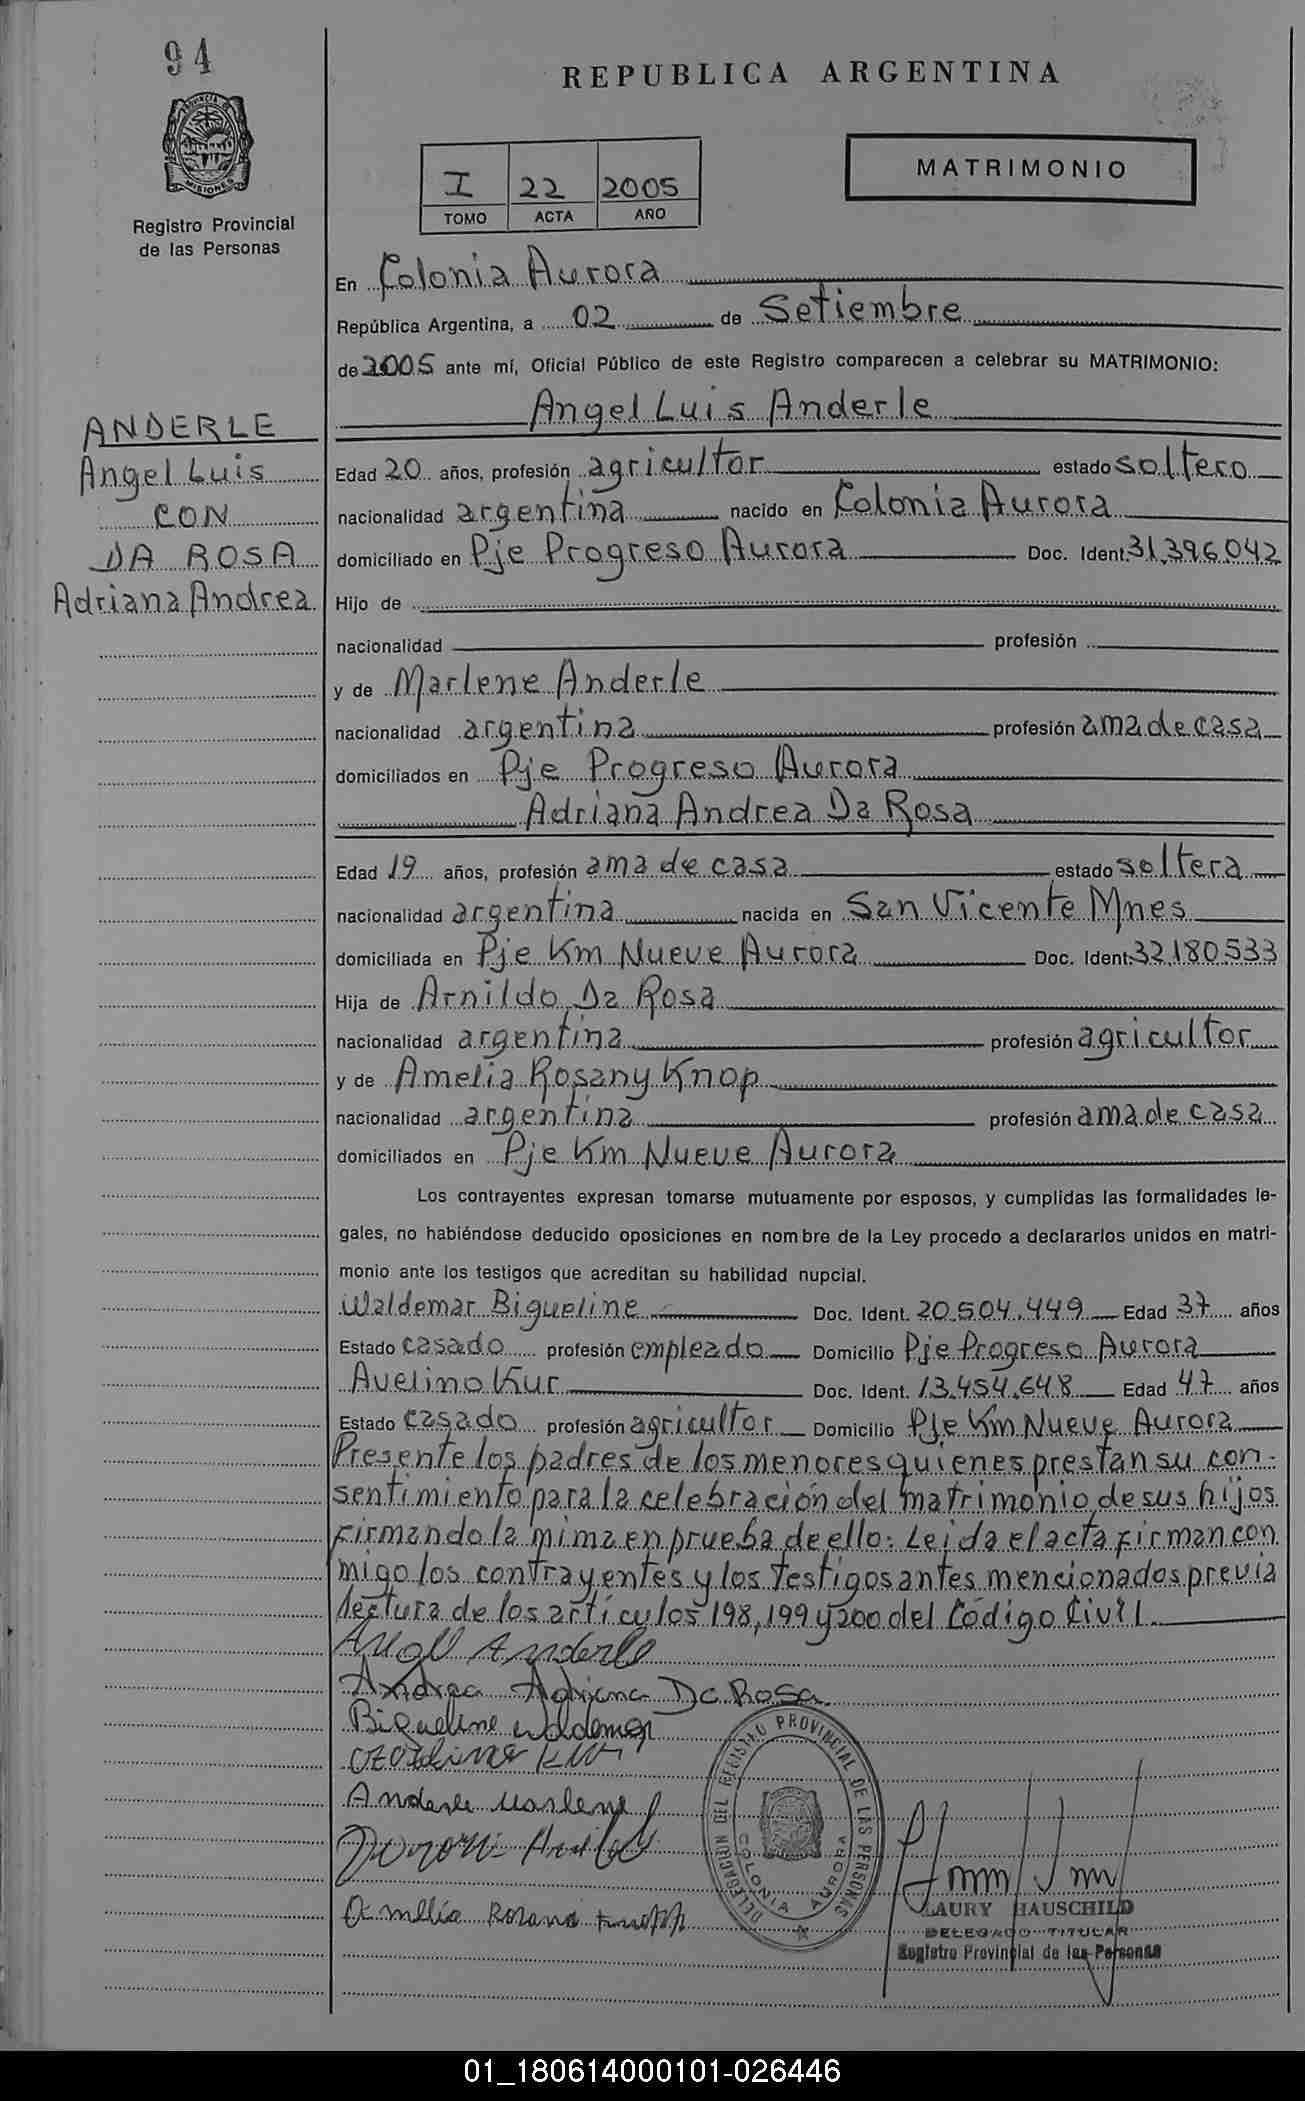 94
REPUBLICA ARGENTINA
PROVINCIA DE MISIONES
Registro Provincial
de las Personas
I 22 2005
TOMO ACTA AÑO
MATRIMONIO
En Colonia Aurora
República Argentina, a 02 de Setiembre
de 2005 ante mí, Oficial Público de este Registro comparecen a celebrar su MATRIMONIO:
ANDERLE
Angel Luis
CON
DA ROSA
Adriana Andrea
Angel Luis Anderle
Edad 20 años, profesión agricultor estado soltero
nacionalidad argentina nacido en Colonia Aurora
domiciliado en Pje Progreso Aurora Doc. Ident. 31.396.042
Hijo de
nacionalidad profesión
y de Marlene Anderle
nacionalidad argentina profesión ama de casa
domiciliados en Pje Progreso Aurora
Adriana Andrea Da Rosa
Edad 19 años, profesión ama de casa estado soltera
nacionalidad argentina nacida en San Vicente Mnes
domiciliada en Pje Km Nueve Aurora Doc. Ident. 32.180.533
Hija de Arnildo Da Rosa
nacionalidad argentina profesión agricultor
y de Amelia Rosany Knop
nacionalidad argentina profesión ama de casa
domiciliados en Pje Km Nueve Aurora
Los contrayentes expresan tomarse mutuamente por esposos, y cumplidas las formalidades le-
gales, no habiéndose deducido oposiciones en nombre de la Ley procedo a declararlos unidos en matri-
monio ante los testigos que acreditan su habilidad nupcial.
Waldemar Bigueline Doc. Ident. 20.504.449 Edad 37 años
Estado casado profesión empleado Domicilio Pje Progreso Aurora
Avelino Kur Doc. Ident. 13.454.648 Edad 47 años
Estado casado profesión agricultor Domicilio Pje Km Nueve Aurora
Presente los padres de los menores quienes prestan su con-
sentimiento para la celebración del matrimonio de sus hijos
firmando la mima en prueba de ello: Leida el acta firman con
migo los contrayentes y los testigos antes mencionados previa
lectura de los artículos 198, 199 y 200 del Código Civil
Angel Anderle
Andrea Adriana Da Rosa
Bigueline Waldemar
Anderle Marlene
DELEGACION DEL REGISTRO PROVINCIAL DE LAS PERSONAS
COLONIA AURORA
LAURY HAUSCHILD
DELEGADO TITULAR
Registro Provincial de las Personas
01_180614000101-026446